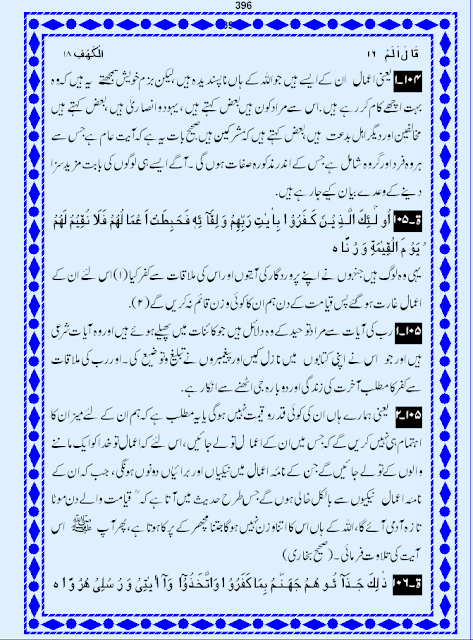 396
قَالَ اَلَمْ ۱۶ اَلْکَھْفِ ۱۸
۱۰۴۔۱ یعنی اعمال ان کے ایسے ہیں جو اللہ کے ہاں ناپسندیدہ ہیں، لیکن بزم خویش سمجھتے یہ ہیں کہ وہ
بہت اچھے کام کر رہے ہیں۔ اس سے مراد کون ہیں بعض کہتے ہیں، یہود و انصاریٰ ہیں، بعض کہتے ہیں
مخالفین اور دیگر اہل بدعت ہیں، بعض کہتے ہیں کہ مشرکین ہیں صحیح بات یہ ہے کہ آیت عام ہے جس سے
ہر وہ فرد اور گروہ شامل ہے جس کے اندر مذکورہ صفات ہوں گی۔ آگے ایسے ہی لوگوں کی بابت مزید سزا
دینے کے وعدے بیان کیے جا رہے ہیں۔
ۃ۔۱۰۵ اُولٰٓئِکَ الَّذِیْنَ کَفَرُوْا بِاٰیٰتِ رَبِّھِمْ وَلِقَآئِہٖ فَحَبِطَتْ اَعْمَالُھُمْ فَلَا نُقِیْمُ لَھُمْ
یَوْمَ الْقِیٰمَۃِ وَزْنًا ہ
یہی وہ لوگ ہیں جنہوں نے اپنے پروردگار کی آیتوں اور اس کی ملاقات سے کفر کیا (۱) اس لئے ان کے
اعمال غارت ہو گئے پس قیامت کے دن ہم ان کا کوئی وزن قائم نہ کریں گے (۲)۔
۱۰۵۔۱ رب کی آیات سے مراد توحید کے وہ دلائل ہیں جو کائنات میں پھیلے ہوئے ہیں اور وہ آیات شرعی
ہیں اور جو اس نے اپنی کتابوں میں نازل کیں اور پیغمبروں نے تبلیغ و توضیع کی۔ اور رب کی ملاقات
سے کفر کا مطلب آخرت کی زندگی اور دوبارہ جی اٹھنے سے انکار ہے۔
۱۰۵۔۲ یعنی ہمارے ہاں ان کی کوئی قدر و قیمت نہیں ہوگی یا یہ مطلب ہے کہ ہم ان کے لئے میزان کا
اہتمام ہی نہیں کریں گے کہ جس میں ان کے اعمال تولے جائیں، اس لئے کہ اعمال تو خدا کو ایک ماننے
والوں کے تولے جائیں گے جن کے نامئہ اعمال میں نیکیاں اور برائیاں دونوں ہونگی، جب کہ ان کے
نامئہ اعمال نیکیوں سے بالکل خالی ہوں گے جس طرح حدیث میں آتا ہے کہ ” قیامت والے دن موٹا
تازہ آدمی آئے گا، اللہ کے ہاں اس کا اتنا وزن نہیں ہوگا جتنا مچھر کے پر کا ہوتا ہے، پھر آپ ﷺ اس
آیت کی تلاوت فرمائی۔ (صحیح بخاری)
ۃ۔۱۰۶ ذٰلِکَ جَزَآئُوھُمْ جَھَنَّمُ بِمَا کَفَرُوْا وَاتَّخَذُوْٓا وَآاٰیٰتِیْ وَرُسُلِیْ ھُزُوًا ہ